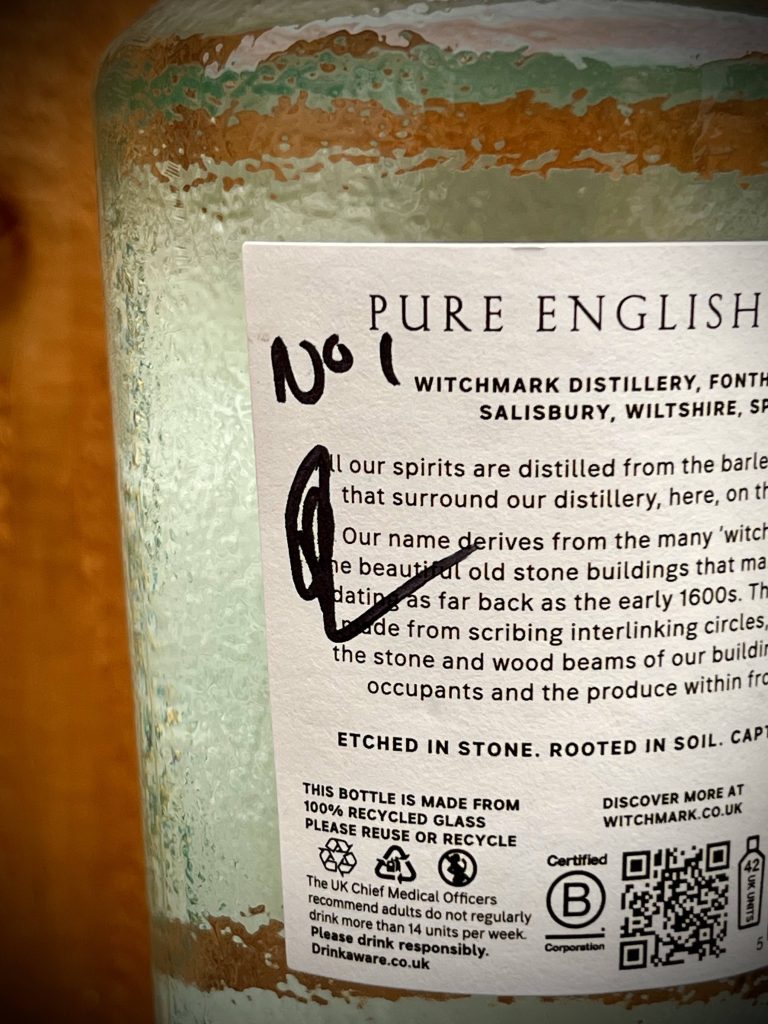 PURE ENGLISH
No 1
WITCHMARK DISTILLERY, FONTH
SALISBURY, WILTSHIRE, SP
ll our spirits are distilled from the barle
that surround our distillery, here, on th
Our name derives from the many ‘witch
he beautiful old stone buildings that ma
dating as far back as the early 1600s. Th
made from scribing interlinking circles,
the stone and wood beams of our buildin
occupants and the produce within fro
ETCHED IN STONE. ROOTED IN SOIL. CAPT
THIS BOTTLE IS MADE FROM
100% RECYCLED GLASS
PLEASE REUSE OR RECYCLE
The UK Chief Medical Officers
recommend adults do not regularly
drink more than 14 units per week.
Please drink responsibly.
Drinkaware.co.uk
DISCOVER MORE AT
WITCHMARK.CO.UK
Certified
B
Corporation
42
UK UNITS
5